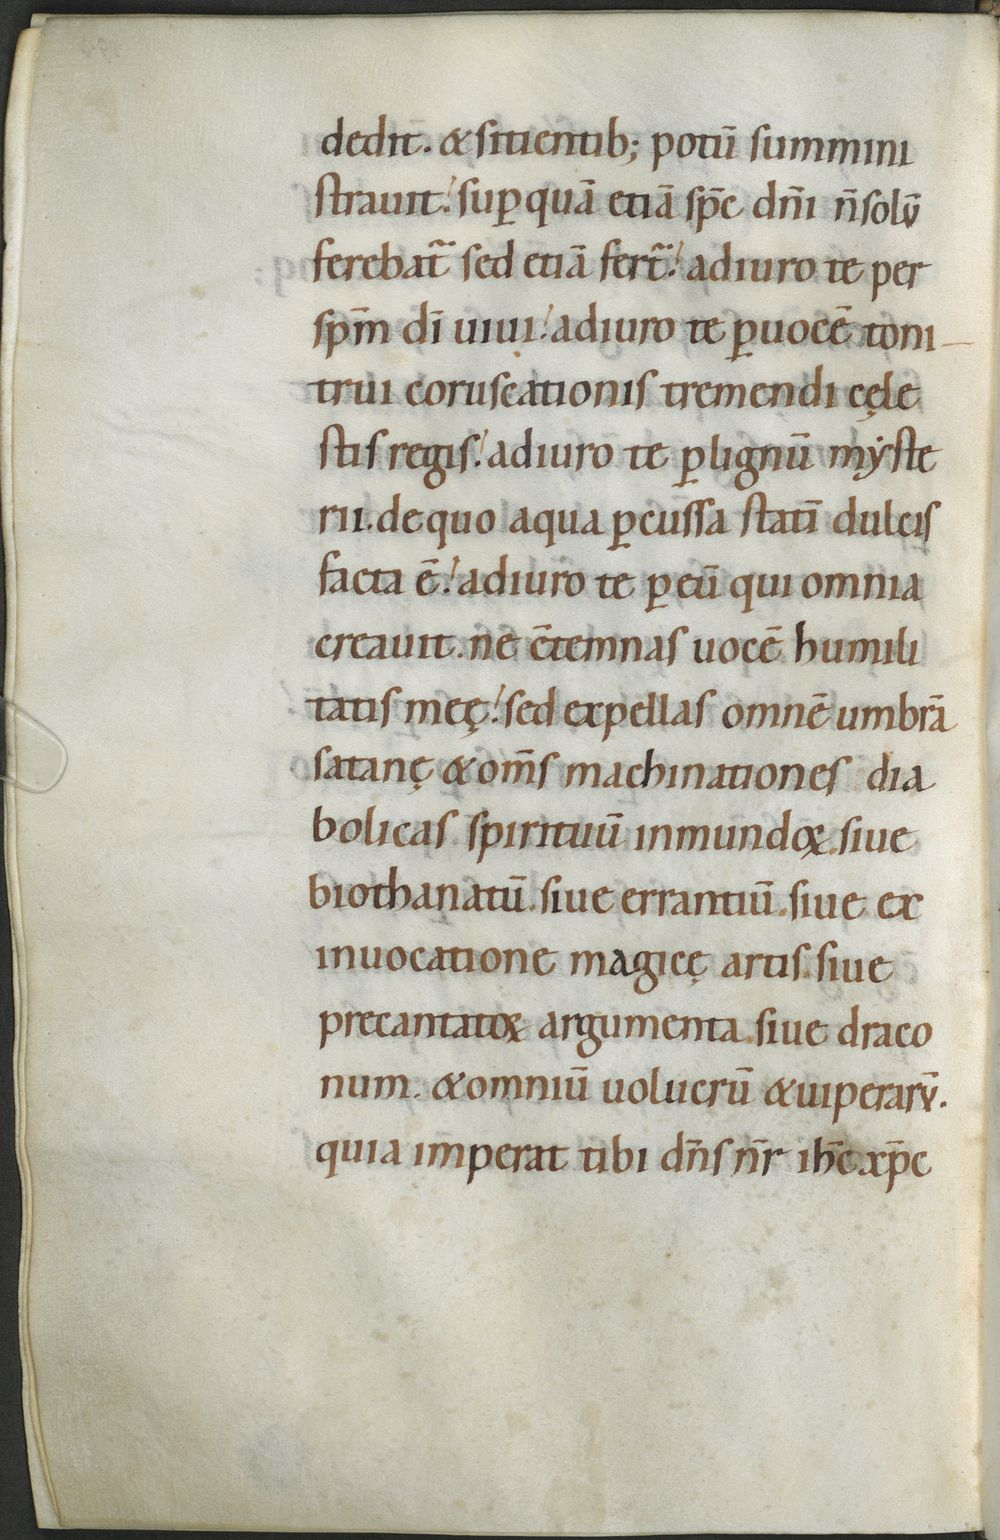 dedit. & sitientib; potū summini
strauit. sup̱ quā etiā sp̄c dn̄i n̄ solū
ferebat̄ sed etiā fert̄. adiuro te per
sp̄m dī uiui. adiuro te p̱ uocē toni
trui coruscationis tremendi cęle
stis regis. adiuro te p̱ lignū mẏste
rii. de quo aqua p̱cussa statī dulcis
facta ē. adiuro te p̱ eū qui omnia
creauit. ne c̄temnas uocē humili
tatis meę. sed expellas omnē umbrā
satanę & om̄s machinationes dia
bolicas spirituū inmundoꝝ. siue
biothanatū. siue errantiū. siue ex
inuocatione magicę artis. siue
precantatoꝝ argumenta. siue draco
num. & omniū uolucrū & uiperarū.
quia im̄perat tibi dn̄s n̄r ih̄c xp̄c